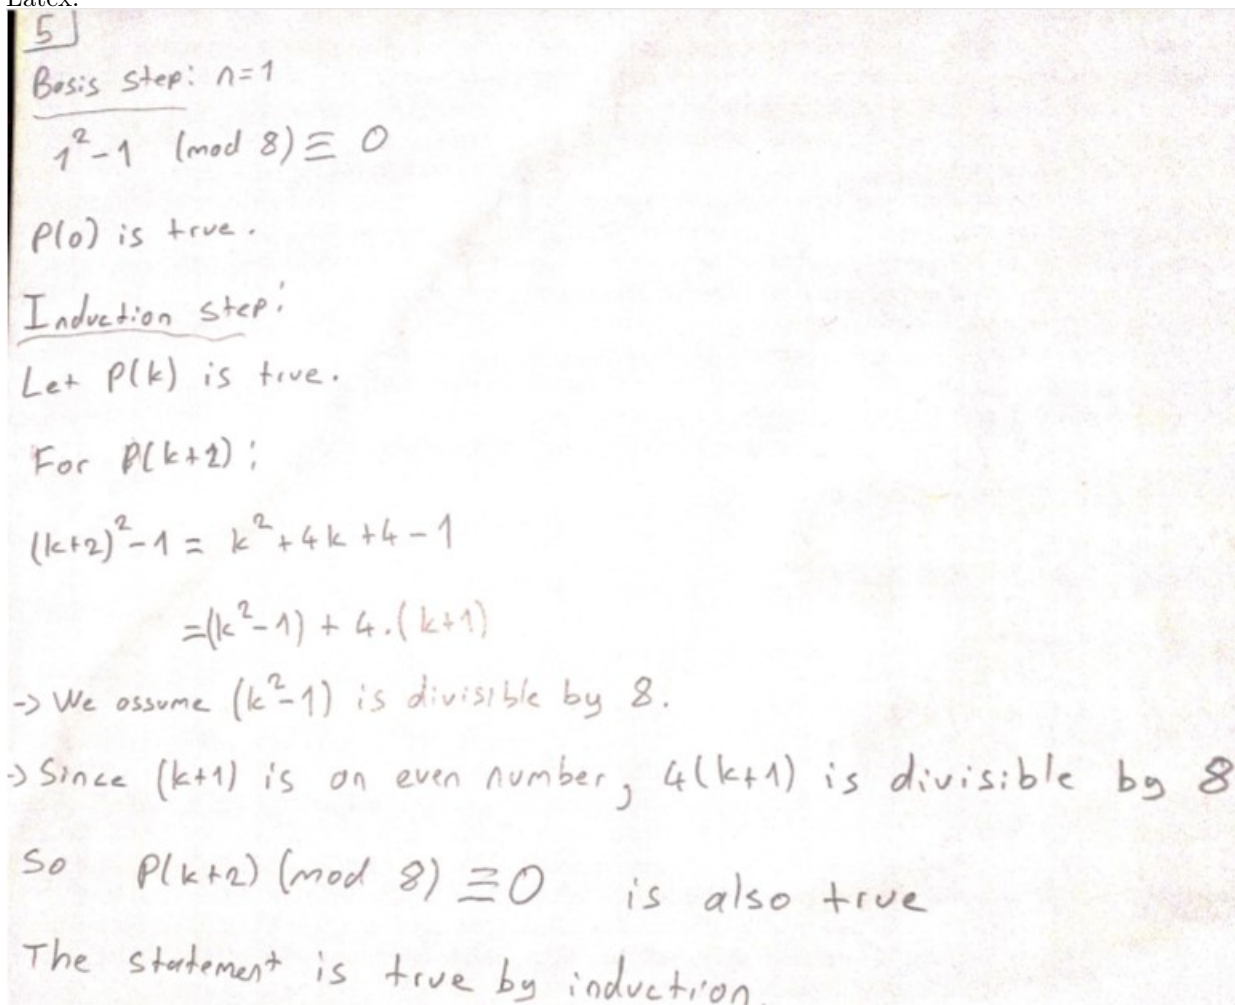 Latex.
5
Basis step: n=1
1²-1 (mod 8) ≡ 0
P(0) is true.
Induction step:
Let P(k) is true.
For P(k+2):
(k+2)²-1 = k²+4k+4-1
=(k²-1) + 4.(k+1)
-> We assume (k²-1) is divisible by 8.
-> Since (k+1) is an even number, 4(k+1) is divisible by 8
So P(k+2) (mod 8) ≡ 0 is also true
The statement is true by induction.